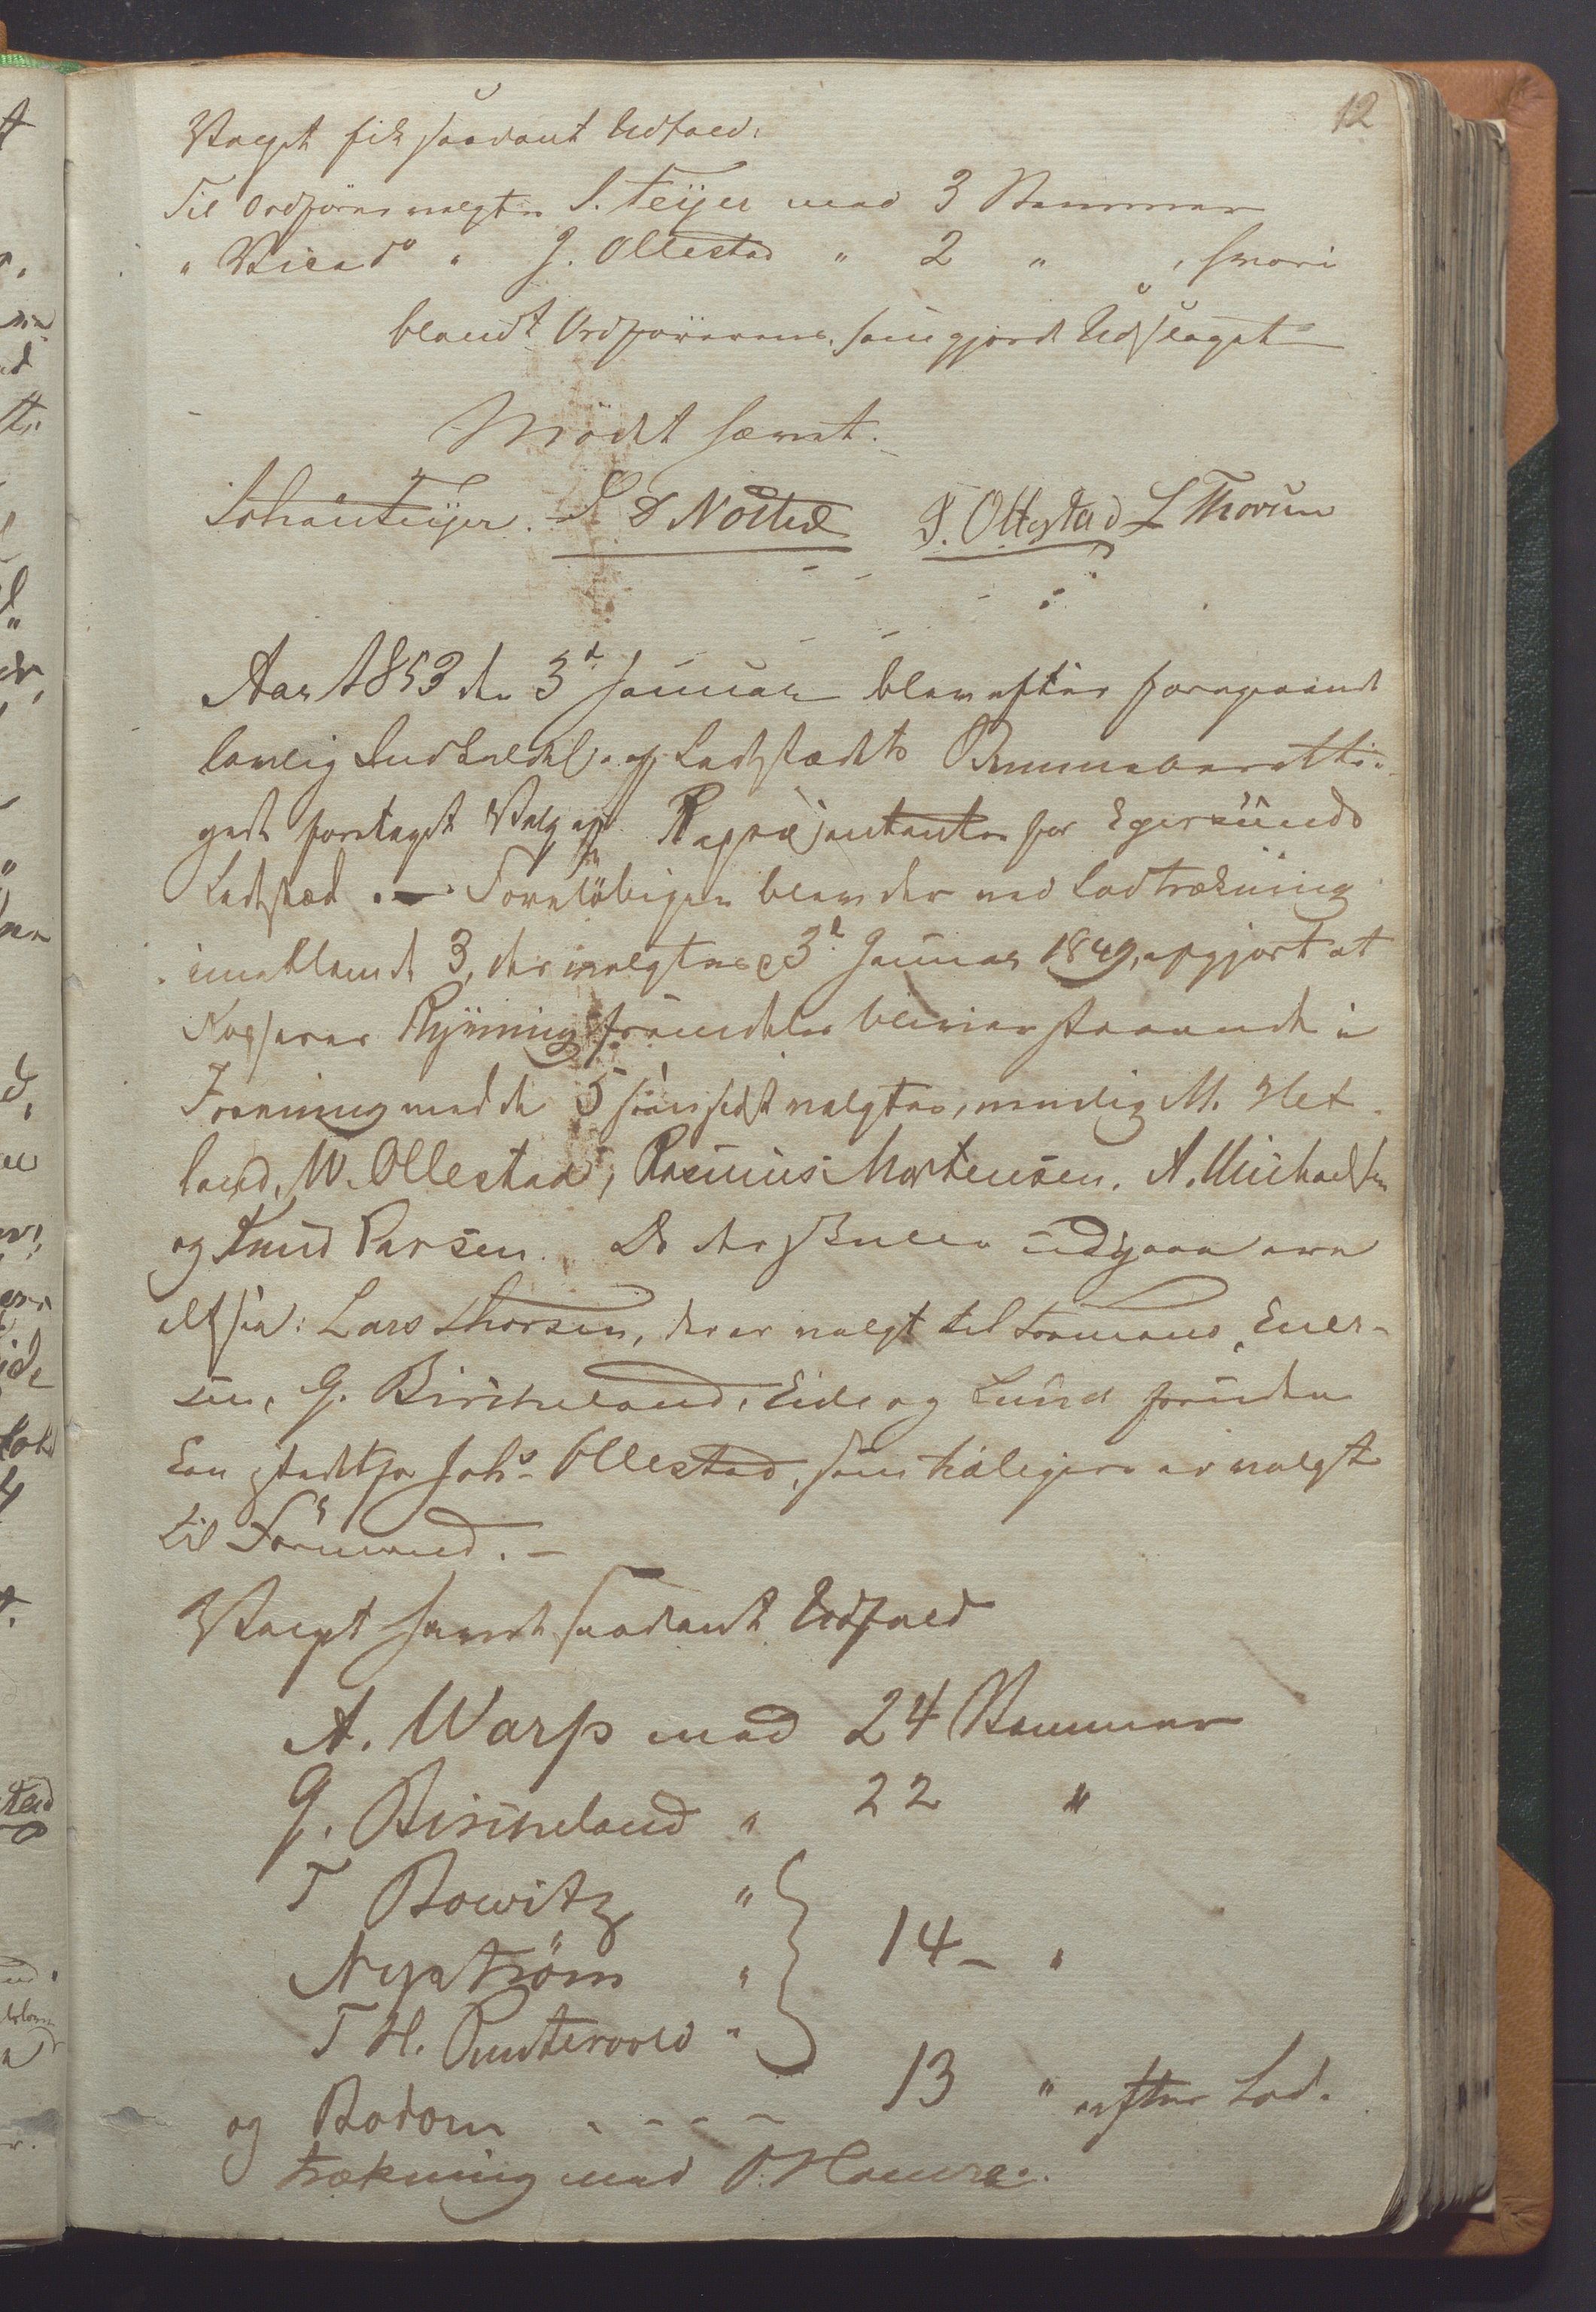 12
Valget fik saadant Udfald:
Til Ordförer valgtes S. Feÿer med 3 Stemmer
" Vice do " J. Ollestad " 2 " , hvori
blandt Ordförerens, som gjorde Udslaget
Mödet hævet.
Schåu Feÿer. S D Nosted J. Ollestad L Thorsen
Aar 1853 den 3de Januar blev efter foregaaende
lovlig Indkaldelse af Ladestædets Stemmeberetti-
gede foretaget Valg af Repræsentanter for Egersunds
Ladestæd. — Foreløbigen blev der ved Lodtrækning
imellem de 3, der valgtes 3d Januar 1849, afgjort at
Rÿning fremdeles bliver staaende i
Forening med de 5 sidst valgte, nemlig M. Het-
land, W. Ollestad, Rasmus Mortensen, A. Michaelsen
og Knud Larsen. De der skulle udgaae ere
altsaa: Lars Thorsen, der er valgt til Formand, Ener-
sen, G. Birkeland, Eide og Lund foruden
En istedetfor Johs Ollestad, som tidligere er valgt
til Formand. —
Valget havde saadant Udfald
A. Warp med 24 Stemmer
G. Birkeland " 22 "
T Bowitz "
Nyström " 14 - "
T H. Puntervold "
og Bodom - - - - 13 " efter Lod-
trækning med O. Hamre.